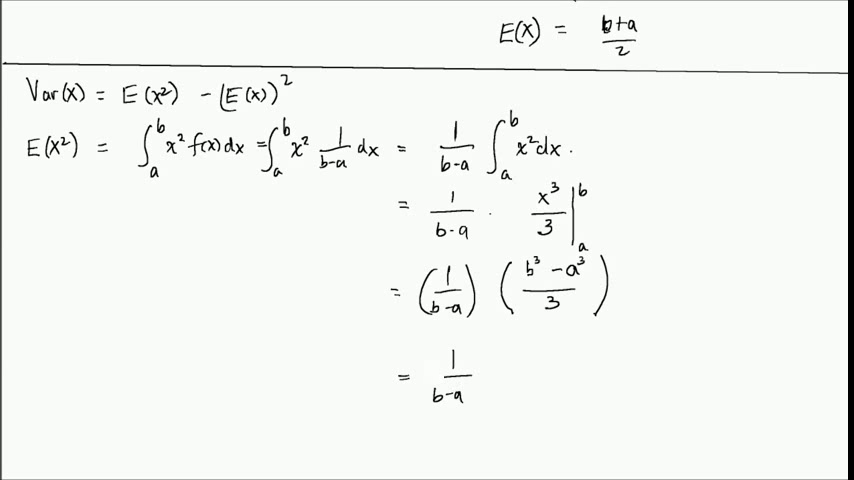 E(X) = b+a/2
Var(X) = E(X²) - (E(X))²
E(X²) = ∫ₐᵇ x² f(x) dx = ∫ₐᵇ x² 1/b-a dx = 1/b-a ∫ₐᵇ x² dx.
= 1/b-a · x³/3 |ₐᵇ
= (1/b-a) (b³ - a³/3)
= 1/b-a